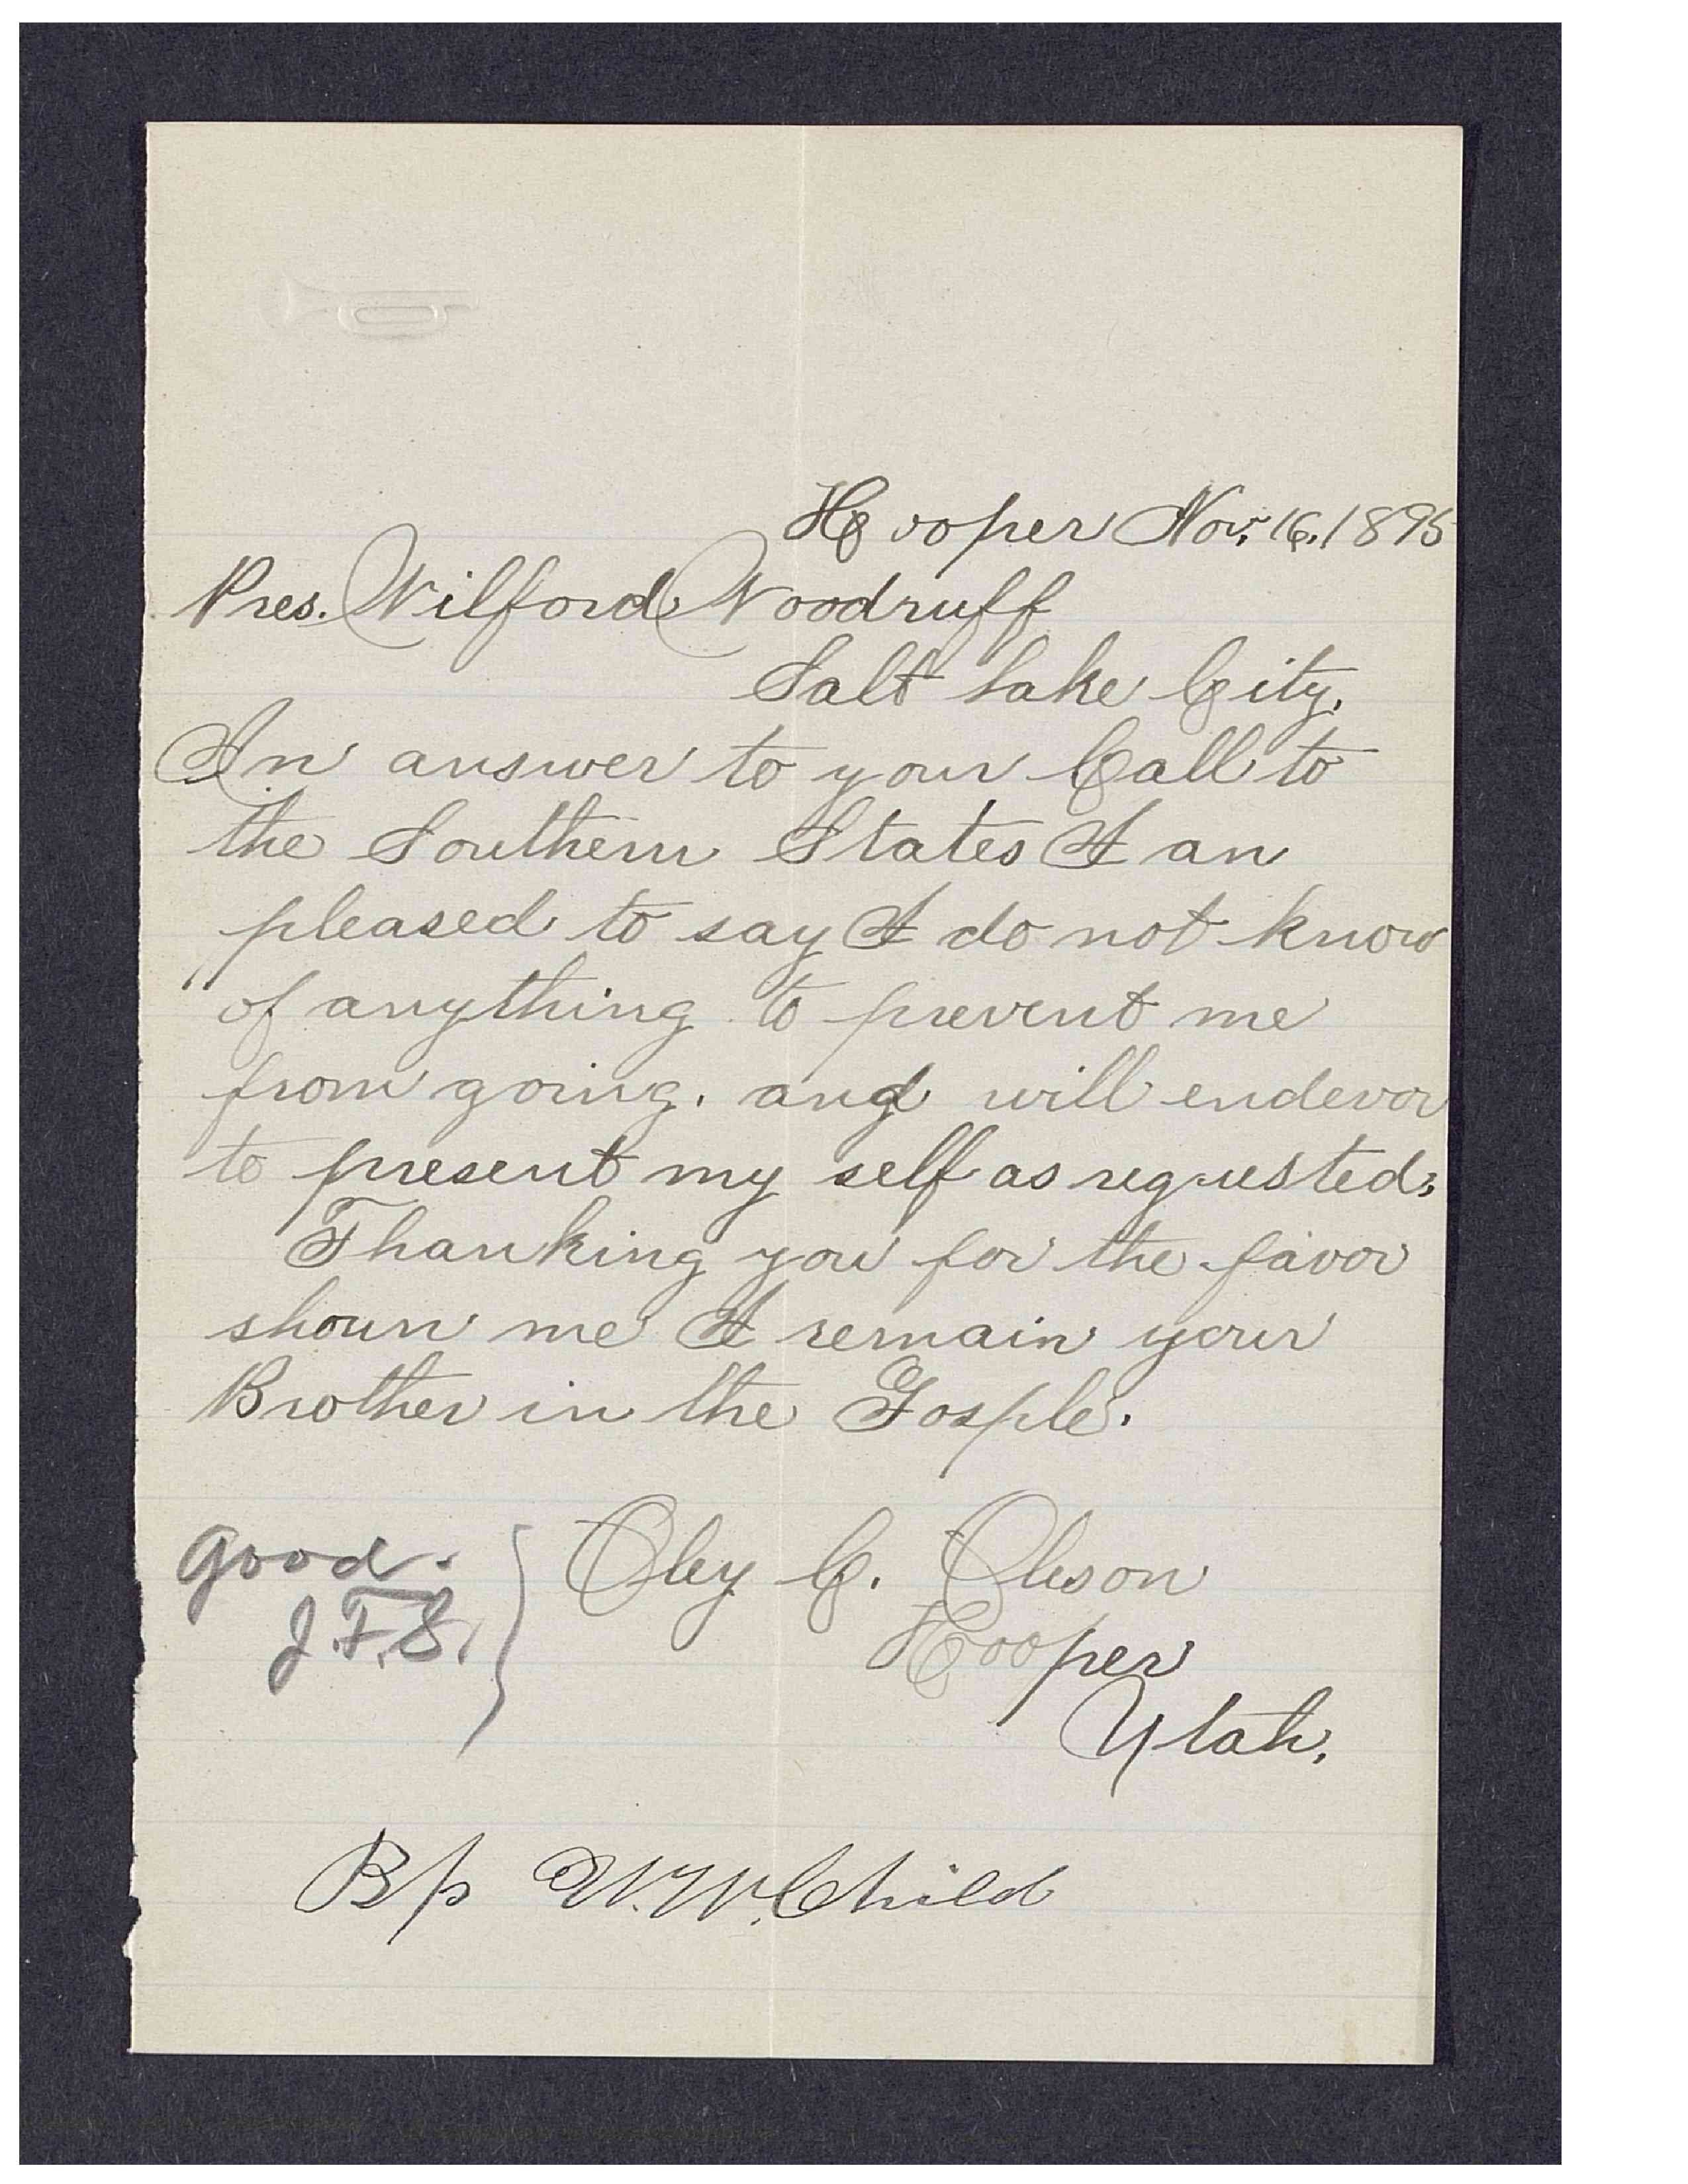 Hooper Nov. 16. 1895
Pres. Wilford Woodruff
Salt Lake City.
In answer to your Call to
the Southern States I an
pleased to say I do not know
of anything to prevent me
from going. and will endevor
to present my self as requested;
Thanking you for the favor
shown me I remain your
Brother in the Gosple.
Oley C. Oleson
Hooper
Utah.
good.
J.F.S.
Bp W.W. Child